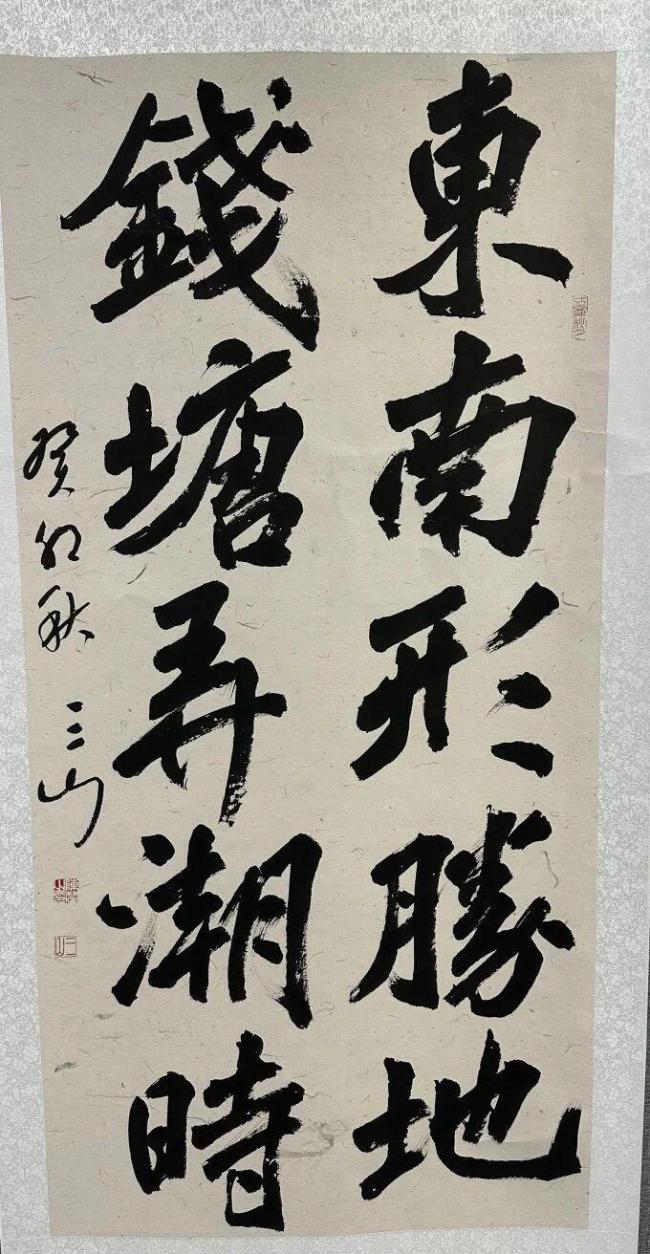 東南形勝地
錢塘弄潮時
癸卯秋 三山